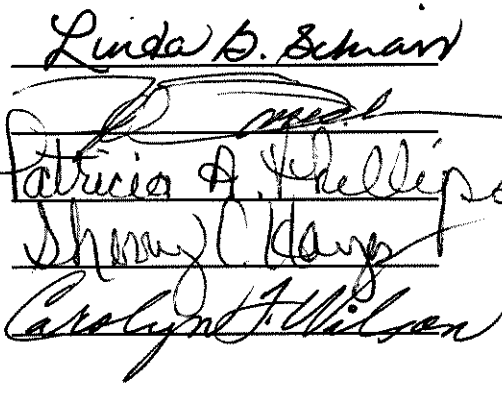 Linda G. Schrait
Patricia A. Phillips
Sherry C. Hays
Carolyn F. Wilson